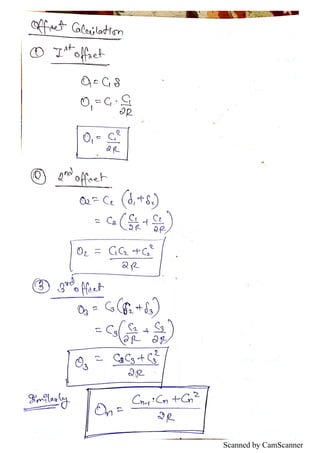 Offset Calculation
① 1st offset
O₁ = C₁ δ
O₁ = C₁ · C₁/2R
O₁ = C₁²/2R
② 2nd offset
O₂ = C₂ (δ₁ + δ₂)
= C₂ (C₁/2R + C₂/2R)
O₂ = C₁C₂ + C₂²/2R
③ 3rd offset
O₃ = C₃ (δ₂ + δ₃)
= C₃ (C₂/2R + C₃/2R)
O₃ = C₂C₃ + C₃²/2R
Similarly
Oₙ = Cₙ₋₁·Cₙ + Cₙ²/2R
Scanned by CamScanner